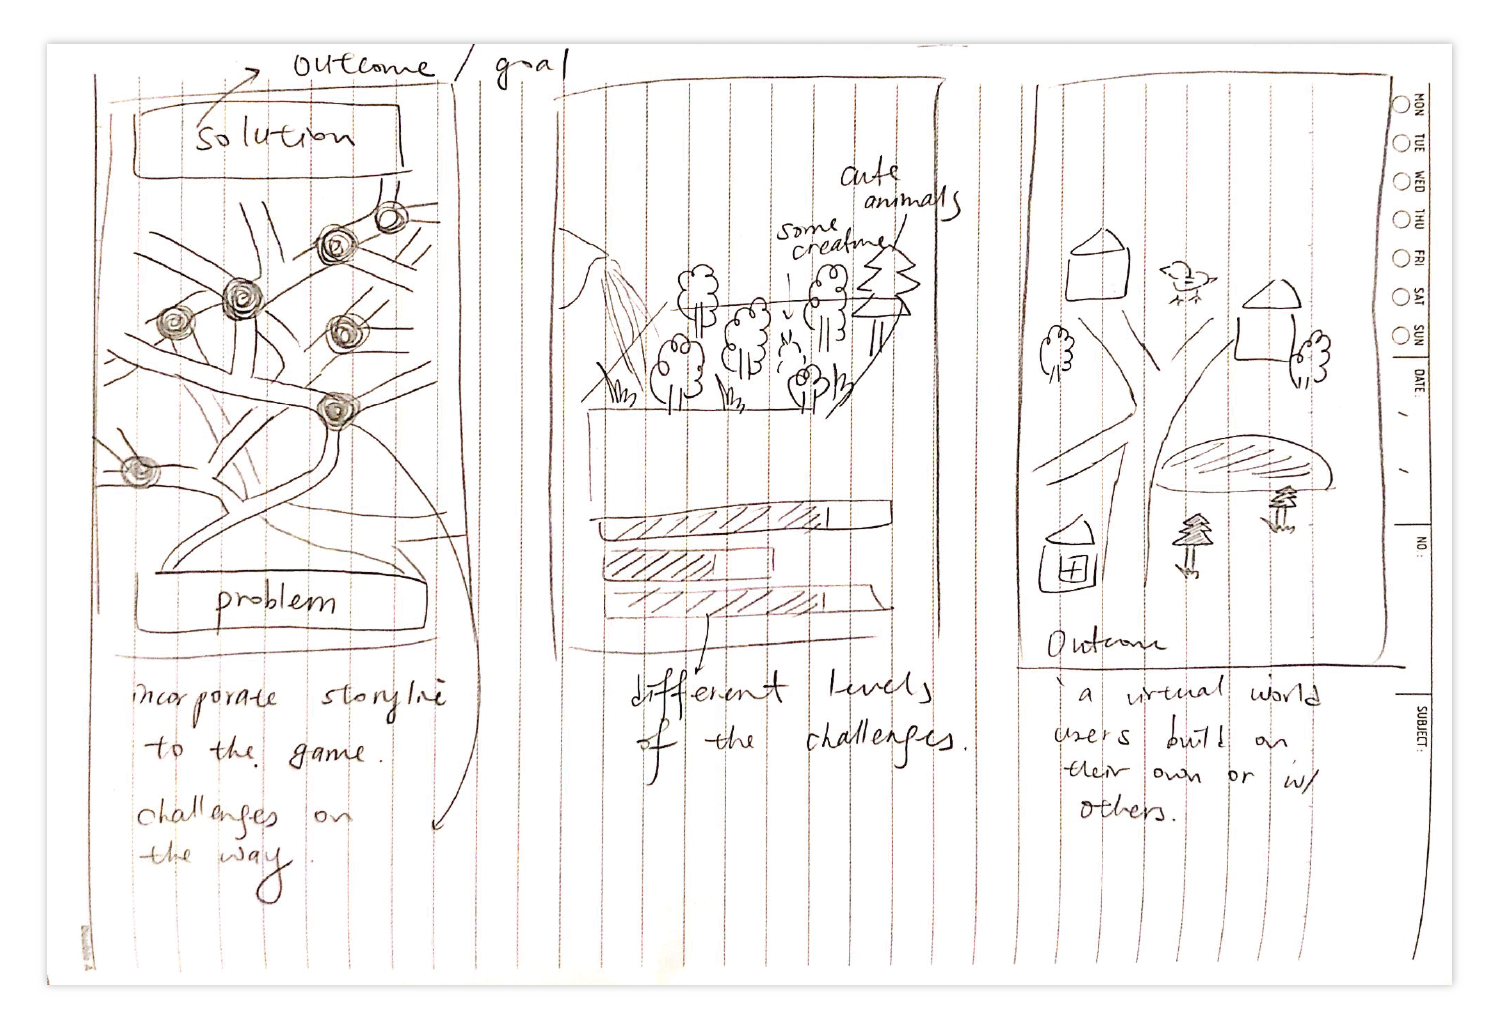 outcome / goal
solution
problem
incorporate storyline
to the game.
challenges on
the way.
cute
animals
some
creature
different levels
of the challenges.
Outcome
a virtual world
users build on
their own or w/
others.
MON
TUE
WED
THU
FRI
SAT
SUN
DATE:
NO:
SUBJECT: